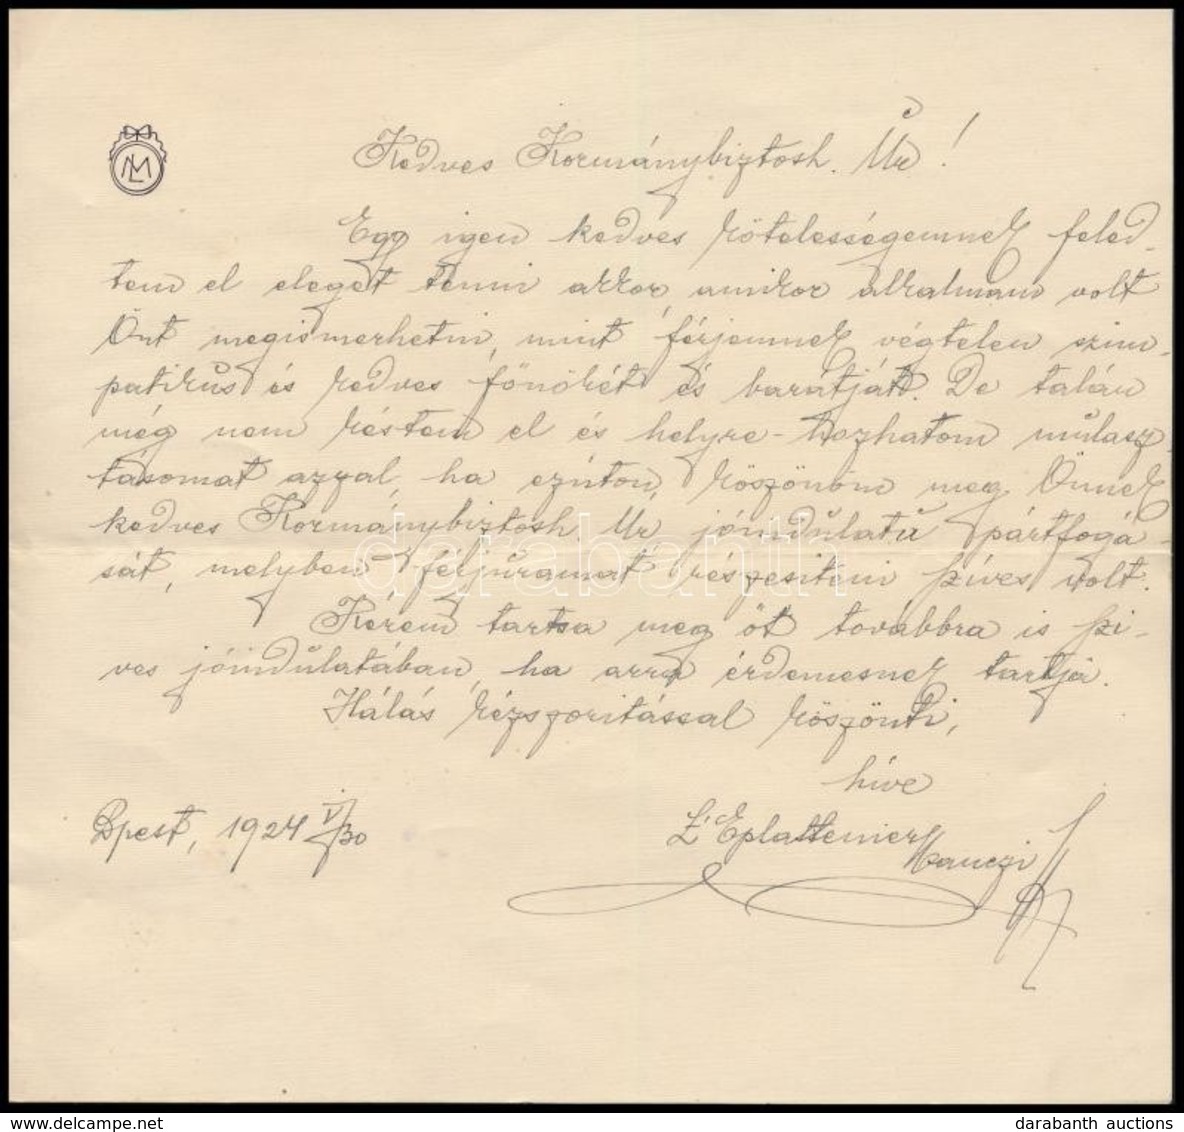 ML
Kedves Kormánybiztosh. Úr!
Egy igen kedves kötelességemnek feled-
tem el eleget tenni akkor, amikor alkalmam volt
Önt megismerhetni, mint férjemnek végtelen szim-
patikus és kedves főnökét és barátját. De talán
még nem késtem el és helyre-hozhatom mulasz-
tásomat azzal, ha ezúton, köszönöm meg Önnek
kedves Kormánybiztosh. Ur jóindulatú pártfogá-
sát, melyben férjuramat részesíteni szíves volt.
Kérem tartsa meg őt továbbra is szi-
ves jóindulatában, ha arra érdemesnek tartja.
Hálás kézszorítással köszönti,
híve
Bpest, 1924 V/30
L'Eplattenier
Manczi
darabanth
www.delcampe.net
darabanth auctions